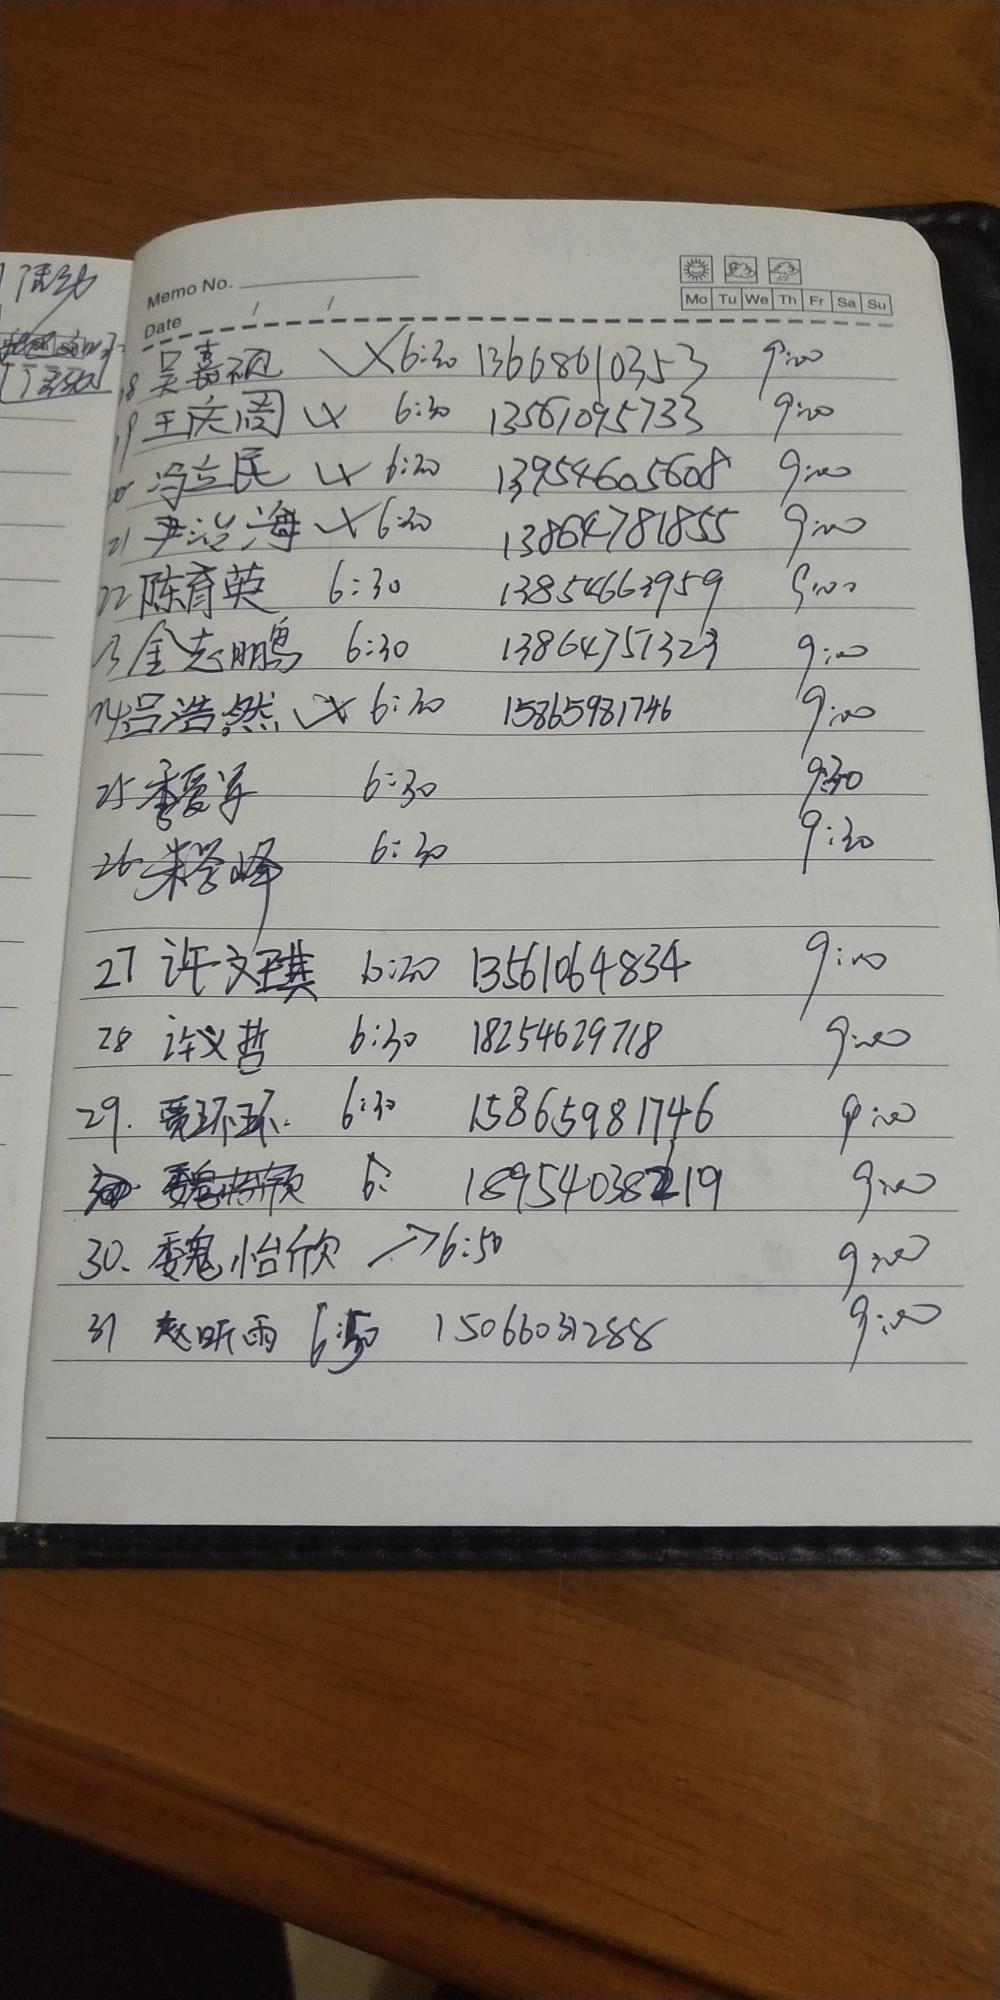 Memo No.
Date / /
Mo Tu We Th Fr Sa Su
18 吴嘉砚 6:30 13668610353 9:00
19 王庆周 6:30 13561095733 9:00
20 冯立民 6:30 13954605608 9:00
21 尹海 6:30 13864781855 9:00
22 陈育英 6:30 13854663959 9:00
23 金志鹏 6:30 13864751323 9:00
24 吕浩然 6:30 15865981746 9:00
25 季爱军 6:30 9:30
26 朱学峰 6:30 9:30
27 许文琪 6:30 13561064834 9:00
28 许义哲 6:30 18254629718 9:00
29. 贾环环. 6:30 15865981746 9:00
6: 9:00
30. 魏怡欣 6:50 9:00
31 赵昕雨 6:50 15066031288 9:00